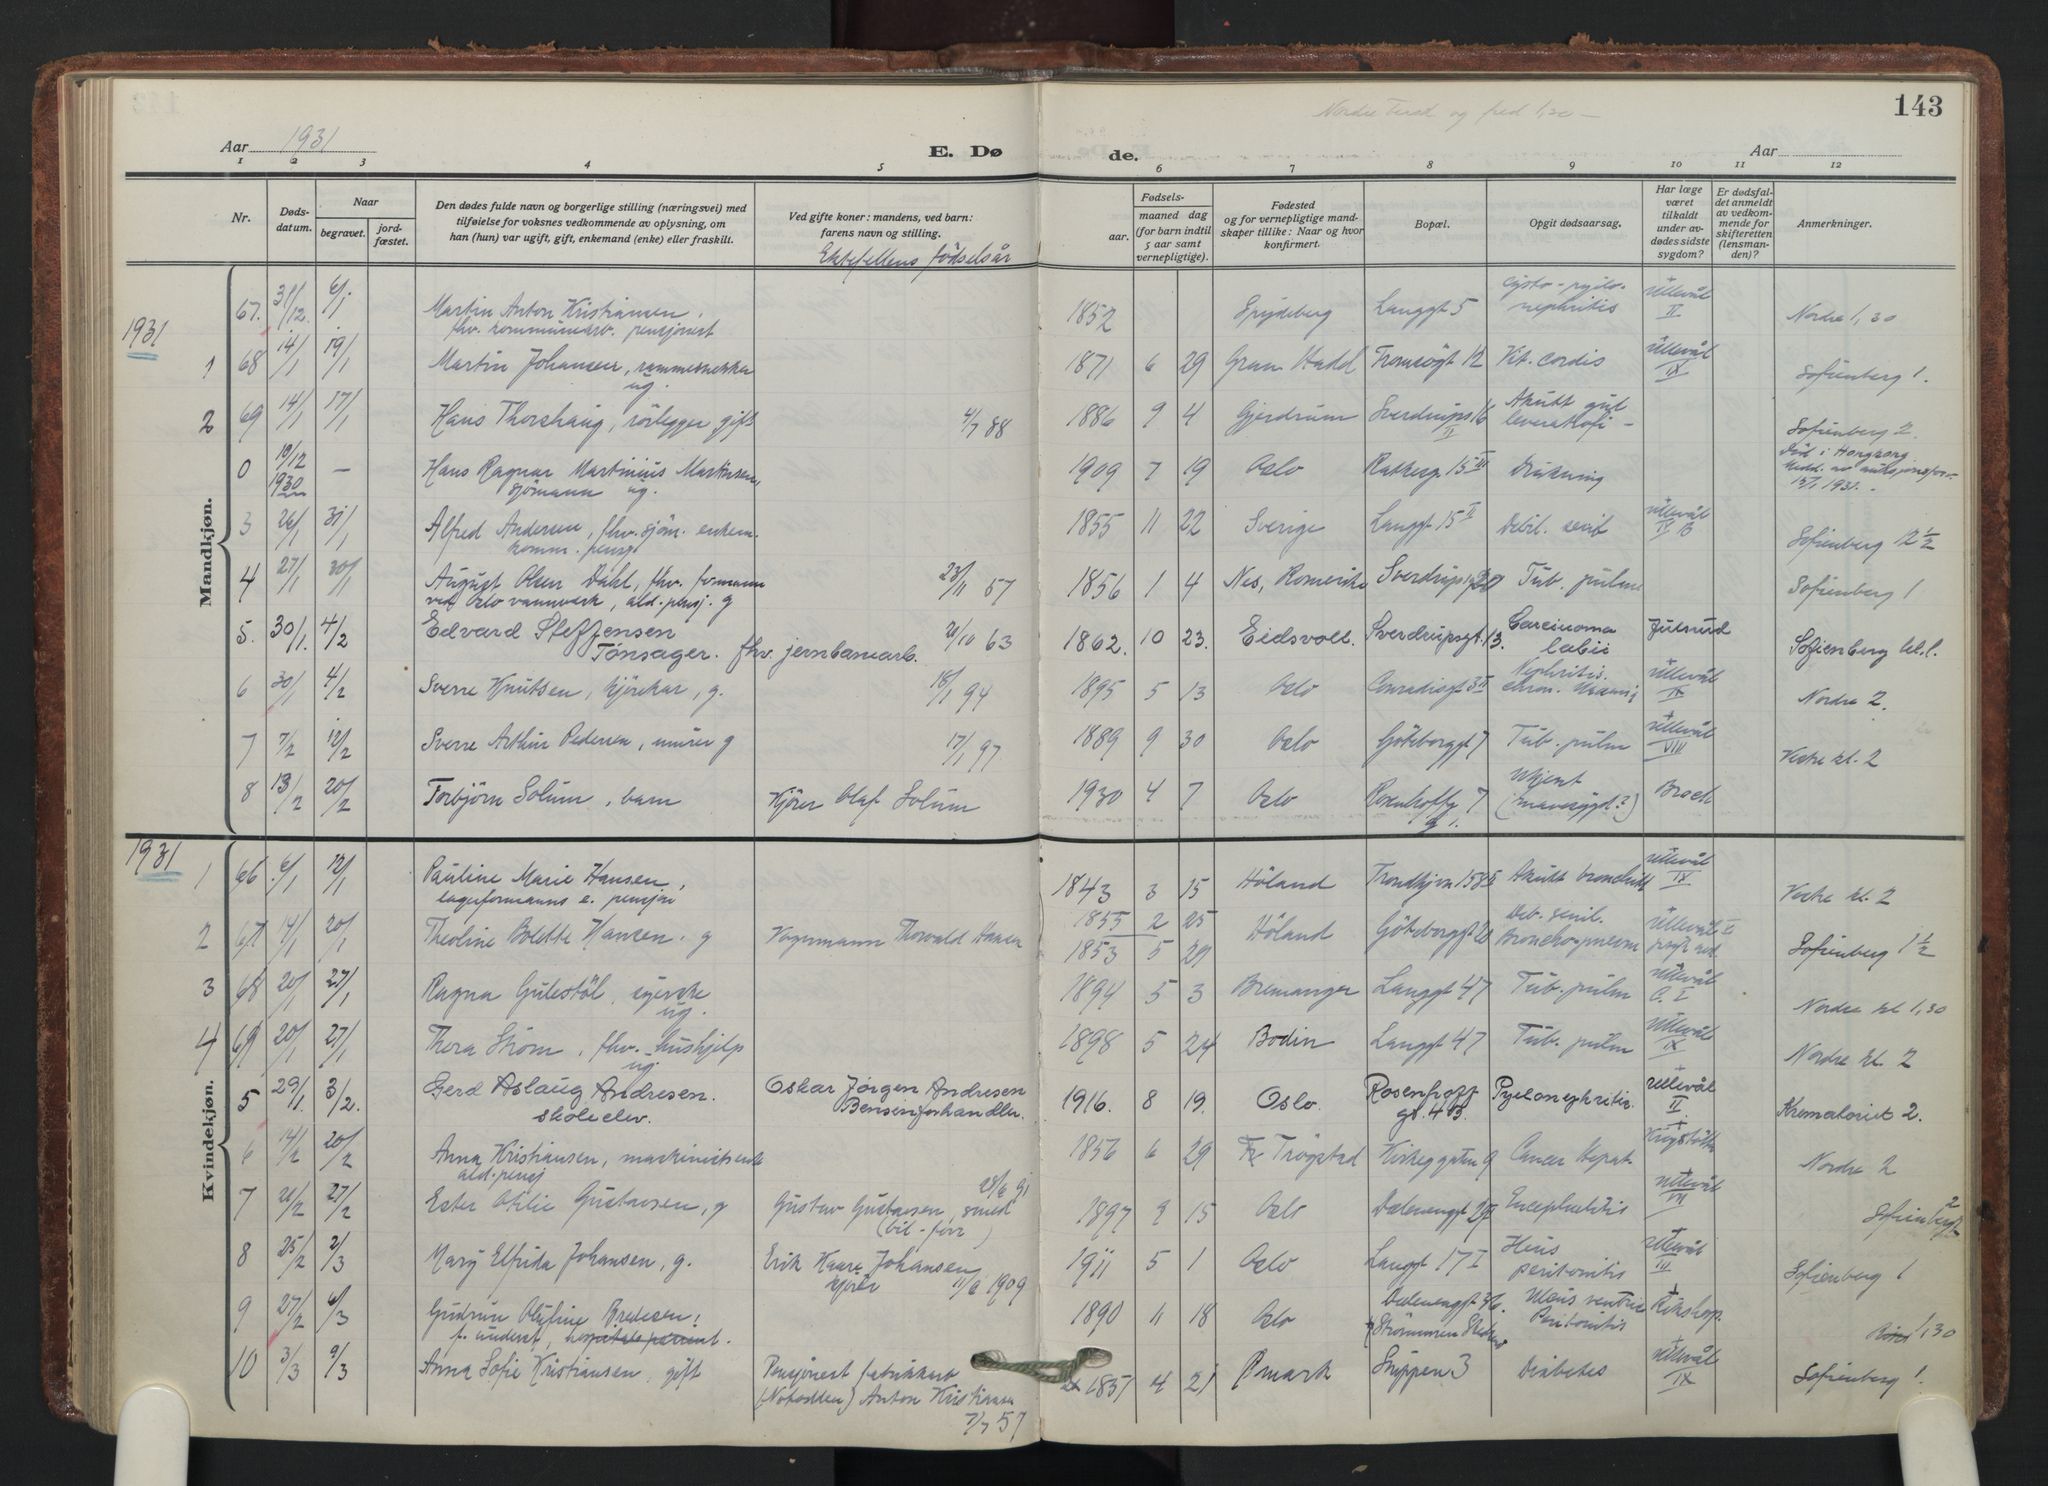 Nordre
143
Aar 1931
E. Dø
de.
Aar
1 2 3 4 5 6 7 8 9 10 11 12
Nr.
Døds-
datum.
Naar
begravet.
jord-
fæstet.
Den dødes fulde navn og borgerlige stilling (næringsvei) med
tilføielse for voksnes vedkommende av oplysning, om
han (hun) var ugift, gift, enkemand (enke) eller fraskilt.
Ved gifte koner: mandens, ved barn:
farens navn og stilling.
Ektefellens fødselsår
Fødsels-
aar.
maaned dag
(for barn indtil
5 aar samt
vernepligtige).
Fødested
og for vernepligtige mand-
skaper tillike: Naar og hvor
konfirmert.
Bopæl.
Opgit dødsaarsag.
Har læge
været
tilkaldt
under av-
dødes sidste
sygdom?
Er dødsfal-
det anmeldt
av vedkom-
mende for
skifteretten
(lensman-
den)?
Anmerkninger.
Mandkjøn.
1931
67. 31/12 6/1 Martin Anton Kristiansen, 1852 Spydeberg Langgt 5 cysto-pyelo-nephritis Ullevål II Nordre 1,30
fhv. kommunearb. pensjonist
1 68 14/1 19/1 Martin Johansen, rammesnekker 1871 6 29 Gran Hadel Tromsøgt 12 Vit. cordis Ullevål IX Sofienberg 1.
ug.
2 69 14/1 17/1 Hans Thorshaug, rørlegger, gift 4/7 88 1886 9 4 Gjerdrum Sverdrupsgt 16 II Akutt gul leveratrofi – Sofienberg 2.
0 19/12 1930 – Hans Ragnar Martinius Martinsen, 1909 7 19 Oslo Rathkesg. 15 III Drukning Død i Hongkong
sjømann ug. 15/1 1931.
3 26/1 31/1 Alfred Andersen, fhv. sjøm. enkem. 1855 11 22 Sverige Langgt 15 II Debil. senil Ullevål IV B Sofienberg 12 1/2
komm. pensj.
4 27/1 30/1 August Olsen Dahl, fhv. formann 23/11 57 1856 1 4 Nes, Romerike Sverdrupsgt 20 Tub. pulm Sofienberg 1
ved Oslo vannverk, ald. pensj. g
5. 30/1. 4/2 Edvard Steffensen 20/10 63 1862. 10 23. Eidsvoll. Sverdrupsgt. 13. Carcinoma labii Julsrud Sofienberg kl. 1.
Tønsager. fhv. jernbanearb.
6 30/1 4/2 Sverre Knutsen, kjørekar, g. 18/1 94 1895 5 13 Oslo Conradisgt 3 II Nephritis chron. Uræmi Ullevål IX Nordre 2.
7 7/2 12/2 Sverre Arthur Pedersen, murer g 17/1 97 1889 9 30 Oslo Göteborggt 7 Tub. pulm Ullevål VIII Vestre kl. 2
8 13/2 20/2 Torbjørn Solum, barn Kjører Olaf Solum 1930 4 7 Oslo Rosenhoffg 7 Ukjent (mavesygd?) Broch
Kvindekjøn.
1931
1 66 6/1 12/1 Pauline Marie Hansen, 1843 3 15 Høland Trondhjvn 158 II Akutt bronchitt Ullevål IX Vestre kl. 2
lagerformanns e. pensjon
2 67 14/1 20/1 Theoline Bolette Hansen, g Vognmann Thorvald Hansen 1855 2 25 Høland Göteborggt 28 Deb. senil. Bronchopneum Ullevål Sofienberg 1 1/2
1853 5 29
3 68 20/1 27/1 Ragna Gulestöl, syerske 1894 5 3 Bremanger Langgt 47 Tub. pulm Ullevål C. I Nordre kl 1,30
ug.
4 69 20/1 27/1 Thora Strøm, fhv. hushjelp 1898 5 24 Bodin Langgt 47 Tub. pulm Ullevål IX Nordre kl. 2
ug.
5 29/1. 3/2. Gerd Aslaug Andresen. Oskar Jørgen Andresen 1916. 8 19. Oslo. Rosenhoff gt. 4 B. Pyelonephritis. Ullevål II Krematoriet 2.
skoleelev. Bensinforhandler.
6 14/2 20/2 Anna Kristiansen, maskinistenke 1856 6 29 Trögstad Kirkeggaten 9 Cancer Hepat. Nordre 2
ald. pensj
7 21/2 27/2 Ester Otilie Gustavsen, g Gustav Gustavsen, smed 28/6 91 1897 9 15 Oslo Dælenenggt 27 Encephalitis Ullevål VII Sofienberggt 2
(bil-forr )
8 25/2 2/3 Mary Elfrida Johansen, g. Erik Kaare Johansen 1911 5 1 Oslo Langgt 17 I Ileus peritonitis Ullevål III Sofienberg 1
kjører 11/6 1909
9 27/2 6/3 Gudrun Olufine Bredesen, 1890 11 18 Oslo Dælenenggt 36. Ulcus ventric Peritonitis Rikshosp. 1,30
f. underst.,
10 3/3 9/3 Anna Sofie Kristiansen, gift Pensjonert fabrikkarb 1857 4 21 Ømark Snippen 3 Diabetes Ullevål IX Sofienberg 1.
(Notodden) Anton Kristiansen
7/7 57